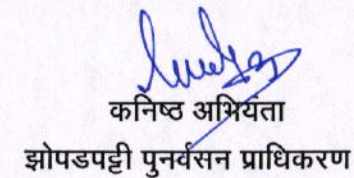 कनिष्ठ अभियंता
झोपडपट्टी पुनर्वसन प्राधिकरण